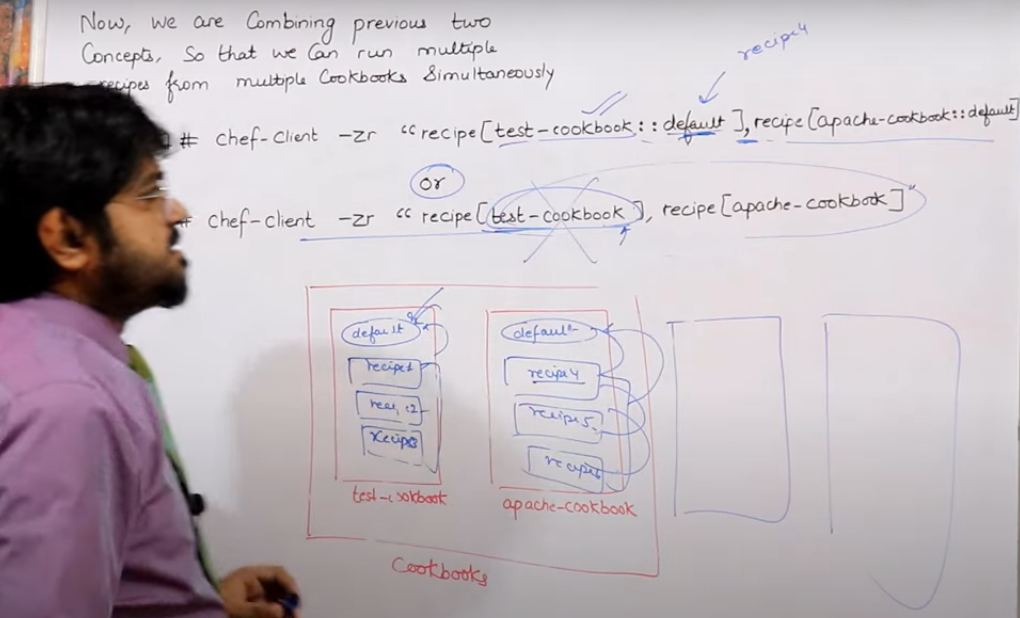 Now, we are Combining previous two
Concepts, So that we Can run multiple
recipes from multiple Cookbooks Simultaneously
recipe4
# chef-client -zr "recipe[test-cookbook::default],recipe[apache-cookbook::default]
or
# chef-client -zr "recipe[test-cookbook], recipe[apache-cookbook]"
default
recipe1
recipe3
test-cookbook
default
recipe4
recipe5
recipe6
apache-cookbook
Cookbooks